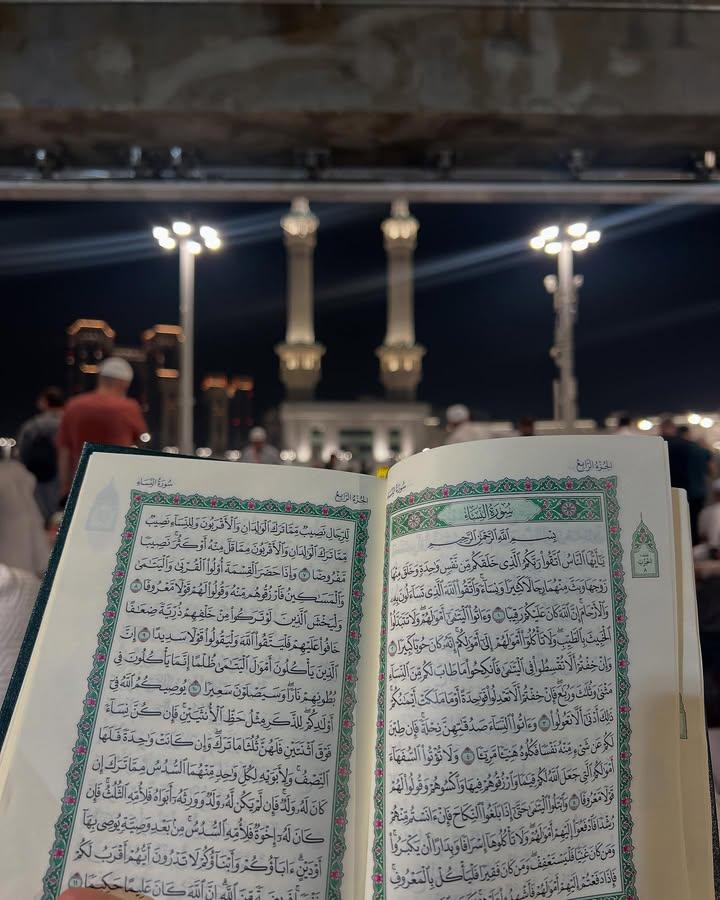 الجزء الرابع
سورة النساء
سُورَةُ النِّسَاءِ
بِسْمِ ٱللَّهِ ٱلرَّحْمَٰنِ ٱلرَّحِيمِ
يَٰٓأَيُّهَا ٱلنَّاسُ ٱتَّقُوا۟ رَبَّكُمُ ٱلَّذِى خَلَقَكُم مِّن نَّفْسٍ وَٰحِدَةٍ وَخَلَقَ مِنْهَا
زَوْجَهَا وَبَثَّ مِنْهُمَا رِجَالًا كَثِيرًا وَنِسَآءً وَٱتَّقُوا۟ ٱللَّهَ ٱلَّذِى تَسَآءَلُونَ بِهِۦ
وَٱلْأَرْحَامَ إِنَّ ٱللَّهَ كَانَ عَلَيْكُمْ رَقِيبًا ١ وَءَاتُوا۟ ٱلْيَتَٰمَىٰٓ أَمْوَٰلَهُمْ وَلَا تَتَبَدَّلُوا۟
ٱلْخَبِيثَ بِٱلطَّيِّبِ وَلَا تَأْكُلُوٓا۟ أَمْوَٰلَهُمْ إِلَىٰٓ أَمْوَٰلِكُمْ إِنَّهُۥ كَانَ حُوبًا كَبِيرًا ٢
وَإِنْ خِفْتُمْ أَلَّا تُقْسِطُوا۟ فِى ٱلْيَتَٰمَىٰ فَٱنكِحُوا۟ مَا طَابَ لَكُم مِّنَ ٱلنِّسَآءِ
مَثْنَىٰ وَثُلَٰثَ وَرُبَٰعَ فَإِنْ خِفْتُمْ أَلَّا تَعْدِلُوا۟ فَوَٰحِدَةً أَوْ مَا مَلَكَتْ أَيْمَٰنُكُمْ
ذَٰلِكَ أَدْنَىٰٓ أَلَّا تَعُولُوا۟ ٣ وَءَاتُوا۟ ٱلنِّسَآءَ صَدُقَٰتِهِنَّ نِحْلَةً فَإِن طِبْنَ
لَكُمْ عَن شَىْءٍ مِّنْهُ نَفْسًا فَكُلُوهُ هَنِيٓـًٔا مَّرِيٓـًٔا ٤ وَلَا تُؤْتُوا۟ ٱلسُّفَهَآءَ
أَمْوَٰلَكُمُ ٱلَّتِى جَعَلَ ٱللَّهُ لَكُمْ قِيَٰمًا وَٱرْزُقُوهُمْ فِيهَا وَٱكْسُوهُمْ وَقُولُوا۟ لَهُمْ
قَوْلًا مَّعْرُوفًا ٥ وَٱبْتَلُوا۟ ٱلْيَتَٰمَىٰ حَتَّىٰٓ إِذَا بَلَغُوا۟ ٱلنِّكَاحَ فَإِنْ ءَانَسْتُم مِّنْهُمْ
رُشْدًا فَٱدْفَعُوٓا۟ إِلَيْهِمْ أَمْوَٰلَهُمْ وَلَا تَأْكُلُوهَآ إِسْرَافًا وَبِدَارًا أَن يَكْبَرُوا۟
وَمَن كَانَ غَنِيًّا فَلْيَسْتَعْفِفْ وَمَن كَانَ فَقِيرًا فَلْيَأْكُلْ بِٱلْمَعْرُوفِ
فَإِذَا دَفَعْتُمْ إِلَيْهِمْ أَمْوَٰلَهُمْ فَأَشْهِدُوا۟
الجزء الرابع
سورة النساء
لِّلرِّجَالِ نَصِيبٌ مِّمَّا تَرَكَ ٱلْوَٰلِدَانِ وَٱلْأَقْرَبُونَ وَلِلنِّسَآءِ نَصِيبٌ
مِّمَّا تَرَكَ ٱلْوَٰلِدَانِ وَٱلْأَقْرَبُونَ مِمَّا قَلَّ مِنْهُ أَوْ كَثُرَ نَصِيبًا
مَّفْرُوضًا ٧ وَإِذَا حَضَرَ ٱلْقِسْمَةَ أُو۟لُوا۟ ٱلْقُرْبَىٰ وَٱلْيَتَٰمَىٰ
وَٱلْمَسَٰكِينُ فَٱرْزُقُوهُم مِّنْهُ وَقُولُوا۟ لَهُمْ قَوْلًا مَّعْرُوفًا ٨
وَلْيَخْشَ ٱلَّذِينَ لَوْ تَرَكُوا۟ مِنْ خَلْفِهِمْ ذُرِّيَّةً ضِعَٰفًا
خَافُوا۟ عَلَيْهِمْ فَلْيَتَّقُوا۟ ٱللَّهَ وَلْيَقُولُوا۟ قَوْلًا سَدِيدًا ٩ إِنَّ
ٱلَّذِينَ يَأْكُلُونَ أَمْوَٰلَ ٱلْيَتَٰمَىٰ ظُلْمًا إِنَّمَا يَأْكُلُونَ فِى
بُطُونِهِمْ نَارًا وَسَيَصْلَوْنَ سَعِيرًا ١٠ يُوصِيكُمُ ٱللَّهُ فِىٓ
أَوْلَٰدِكُمْ لِلذَّكَرِ مِثْلُ حَظِّ ٱلْأُنثَيَيْنِ فَإِن كُنَّ نِسَآءً
فَوْقَ ٱثْنَتَيْنِ فَلَهُنَّ ثُلُثَا مَا تَرَكَ وَإِن كَانَتْ وَٰحِدَةً فَلَهَا
ٱلنِّصْفُ وَلِأَبَوَيْهِ لِكُلِّ وَٰحِدٍ مِّنْهُمَا ٱلسُّدُسُ مِمَّا تَرَكَ إِن
كَانَ لَهُۥ وَلَدٌ فَإِن لَّمْ يَكُن لَّهُۥ وَلَدٌ وَوَرِثَهُۥٓ أَبَوَاهُ فَلِأُمِّهِ ٱلثُّلُثُ فَإِن
كَانَ لَهُۥٓ إِخْوَةٌ فَلِأُمِّهِ ٱلسُّدُسُ مِنۢ بَعْدِ وَصِيَّةٍ يُوصِى بِهَآ
أَوْ دَيْنٍ ءَابَآؤُكُمْ وَأَبْنَآؤُكُمْ لَا تَدْرُونَ أَيُّهُمْ أَقْرَبُ لَكُمْ
نَفْعًا فَرِيضَةً مِّنَ ٱللَّهِ إِنَّ ٱللَّهَ كَانَ عَلِيمًا حَكِيمًا ١١